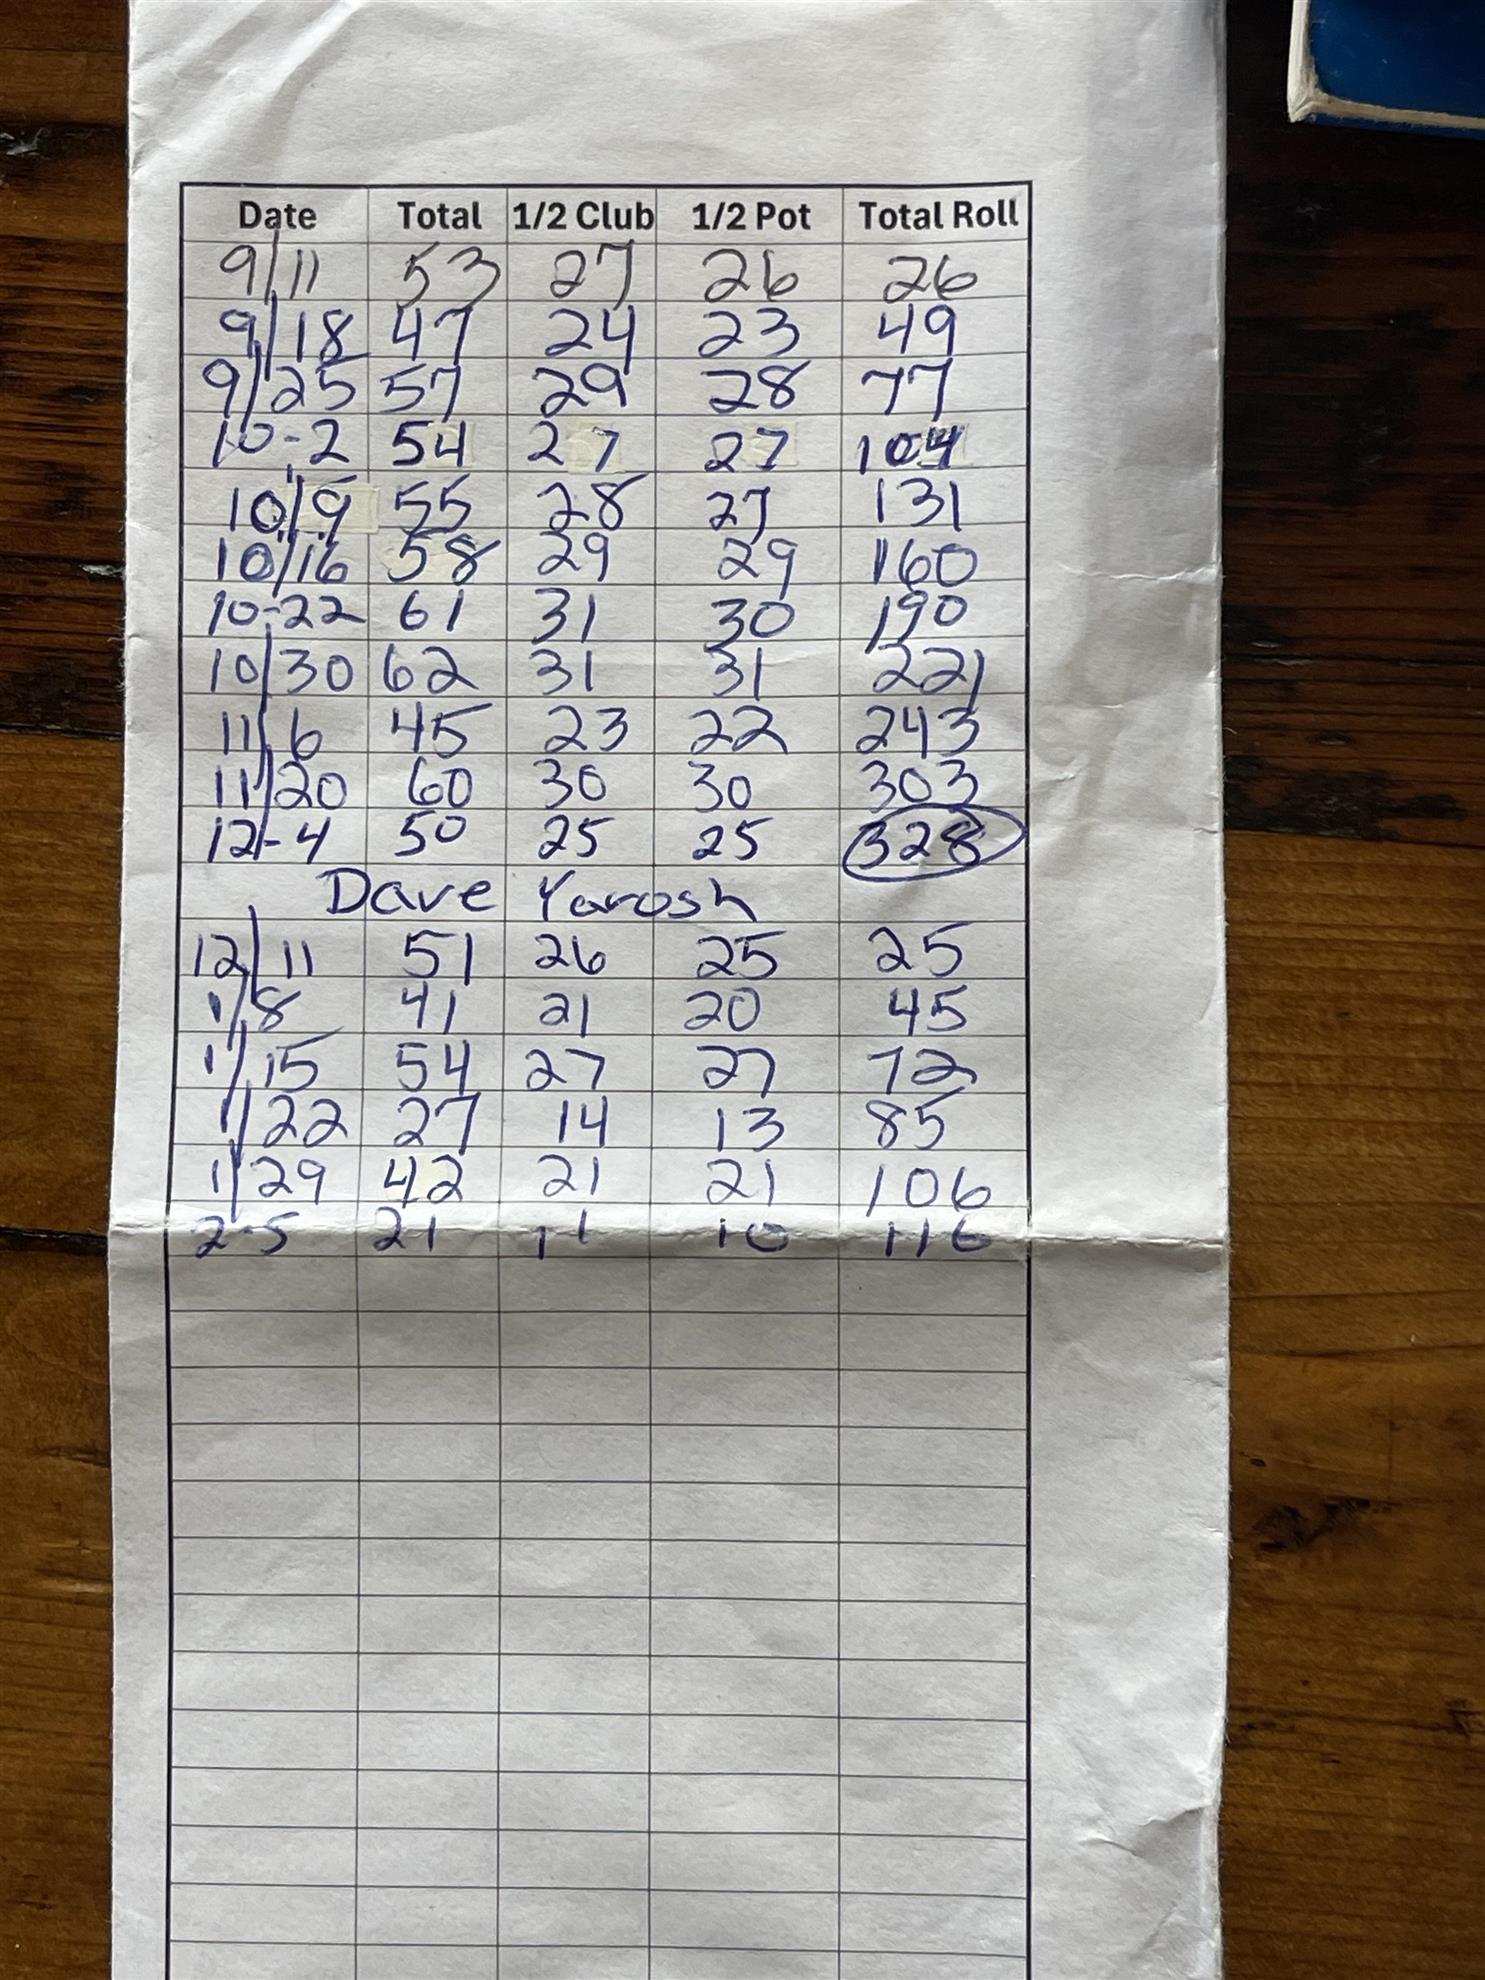 Date Total 1/2 Club 1/2 Pot Total Roll
9/11 53 27 26 26
9/18 47 24 23 49
9/25 57 29 28 77
10-2 54 27 27 104
10/9 55 28 27 131
10/16 58 29 29 160
10-22 61 31 30 190
10/30 62 31 31 221
11/6 45 23 22 243
11/20 60 30 30 303
12-4 50 25 25 328
Dave Yarosh
12/11 51 26 25 25
1/8 41 21 20 45
1/15 54 27 27 72
1/22 27 14 13 85
1/29 42 21 21 106
2-5 21 11 10 116